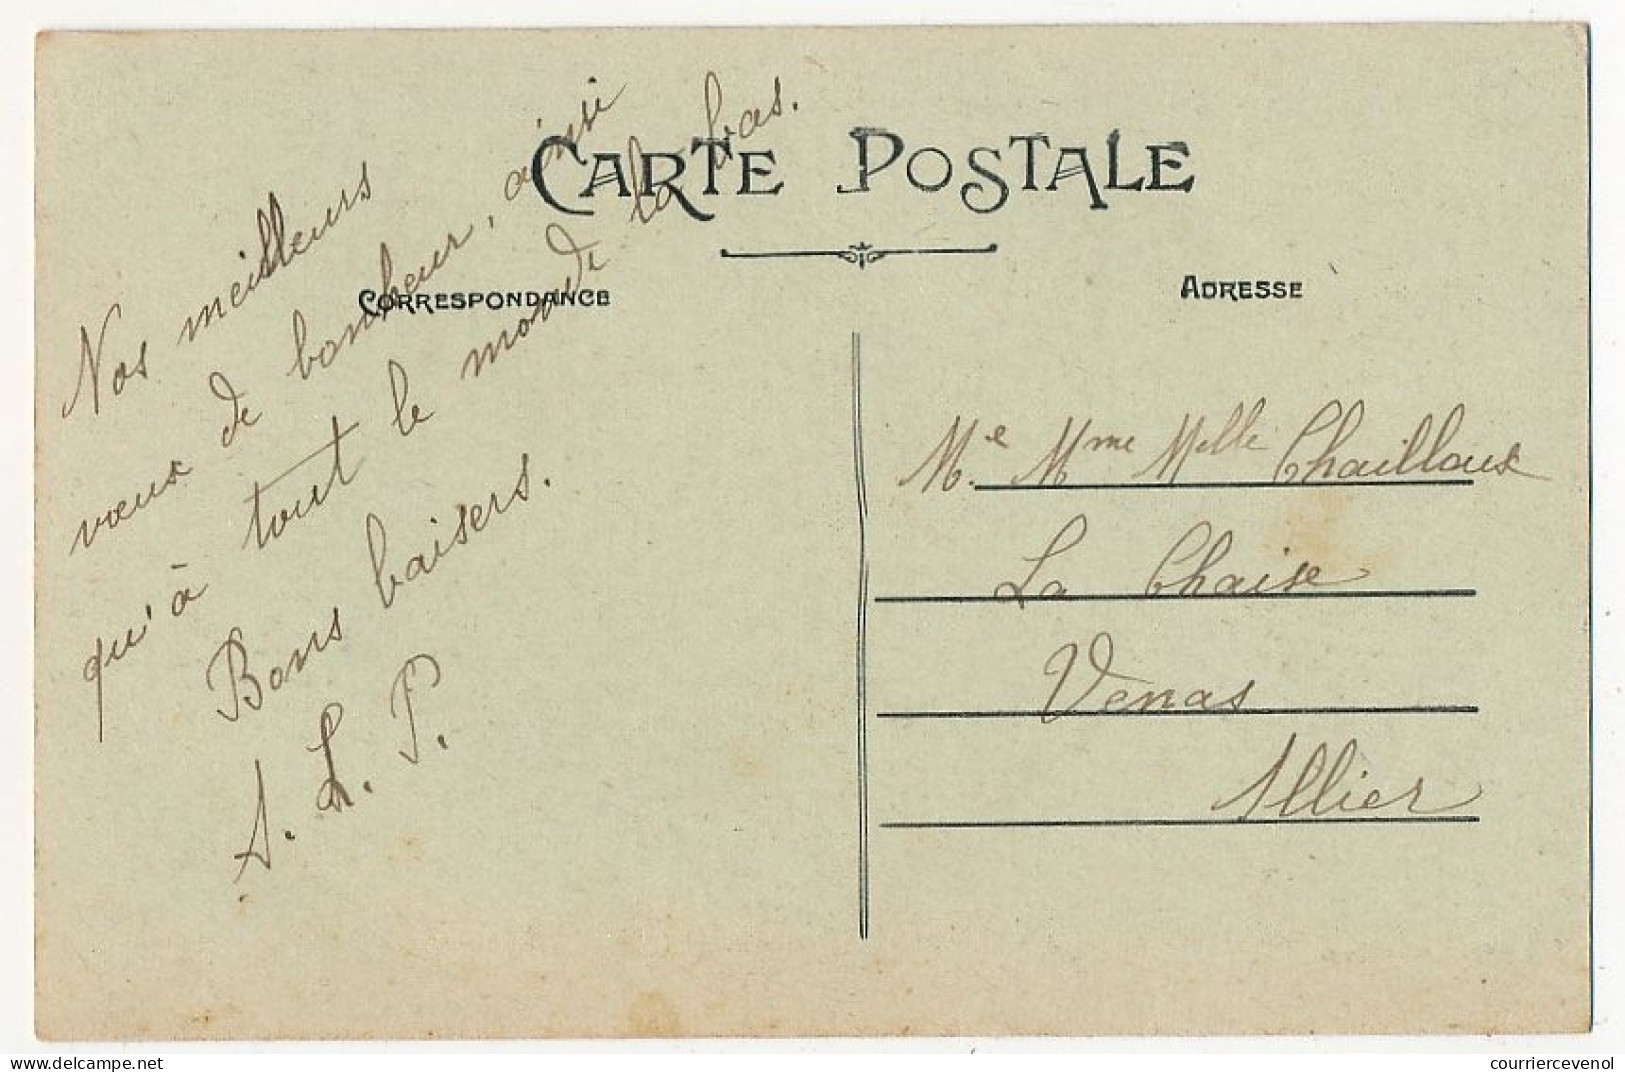 CARTE POSTALE
CORRESPONDANCE
ADRESSE
Nos meilleurs
vœux de bonheur, ainsi
qu'à tout le monde la bas.
Bons baisers.
A. L. P.
M.e Mme Melle Chailloux
La Chaise
Venas
Allier
courriercevenol